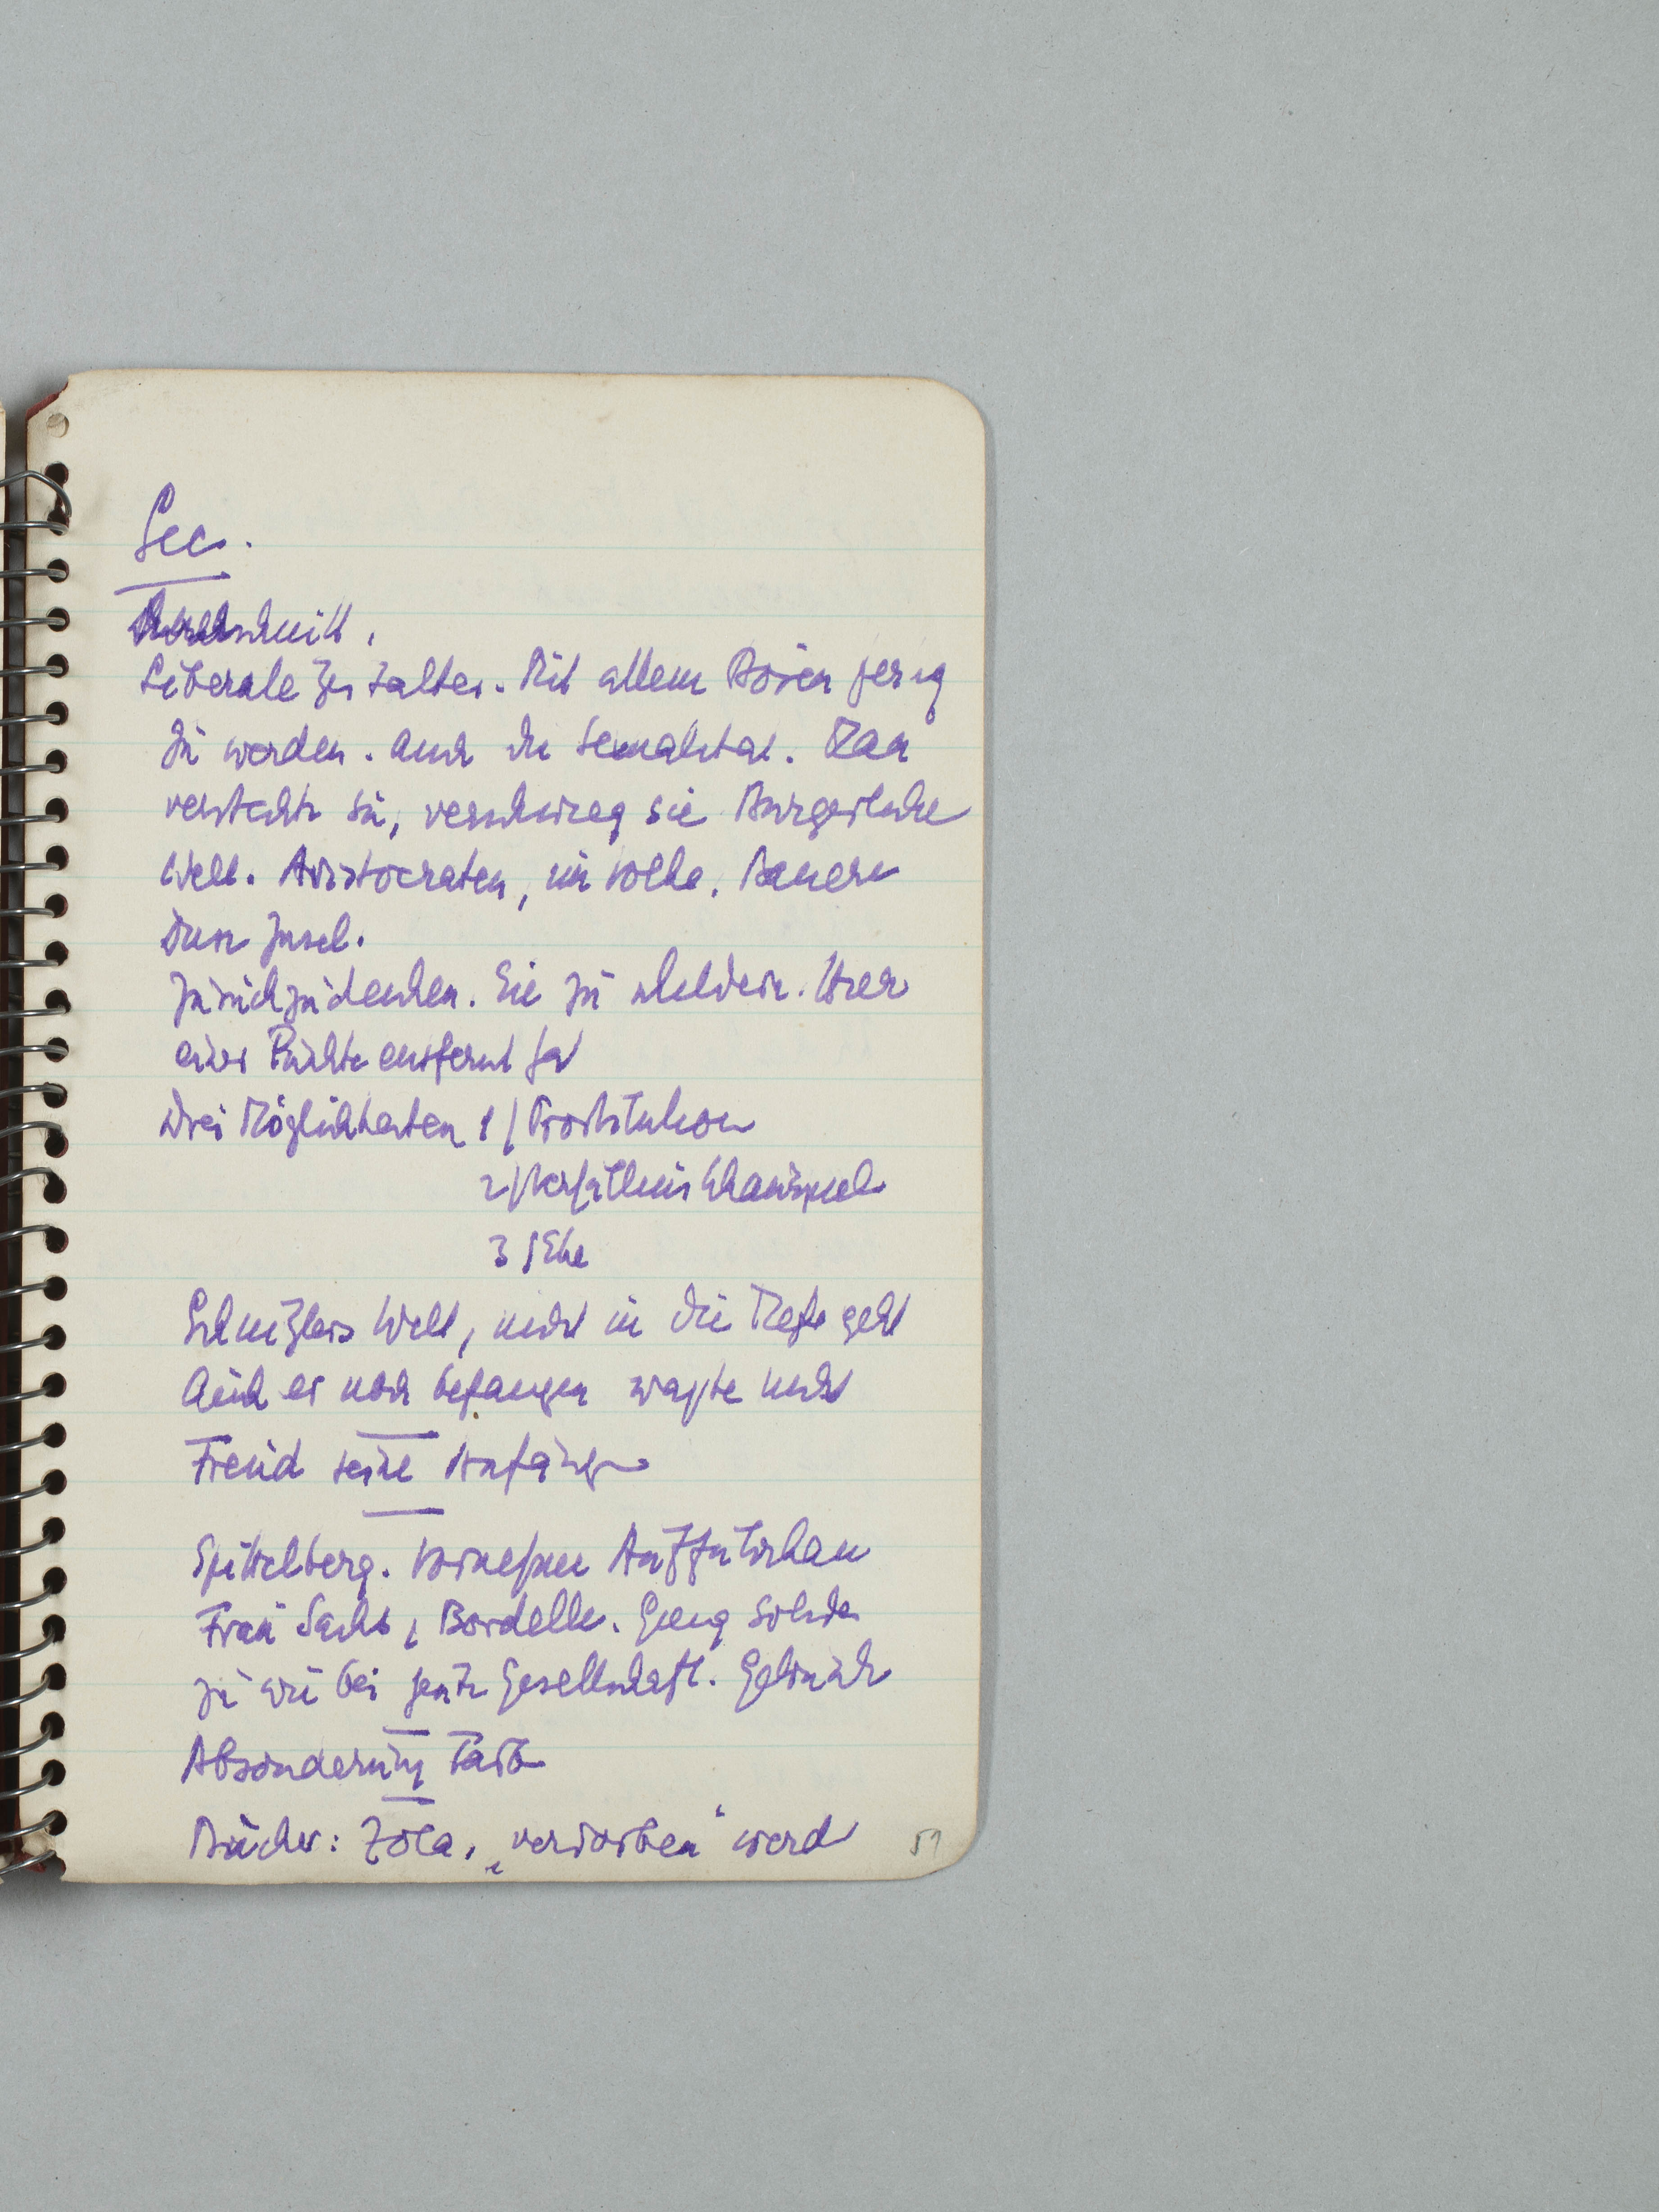 Sec.
Liberale Zeitalter. Mit allem Bösen fertig
zu werden. Auch die Sexualität. Man
versteckte sie, verschwieg sie Bürgerliche
Welt. Aristocraten, im Volke. Bauern
Insel.
zurückzudenken. Sie zu schildern. Wer
entfernt hat
Drei Möglichkeiten 1/ Prostitution
2/ Verhältnis Schauspiel
3/ Ehe
Schnitzlers Welt, nicht in die Tiefe geht
Auch er noch befangen wagte nicht
Freud seine Anfänge
Spittelberg.
Frau Sacher, Bordelle. Ging solider
zu wie bei guter Gesellschaft. Gebräuche
Absonderung
Bücher: Zola, „verdorben“ werd
51